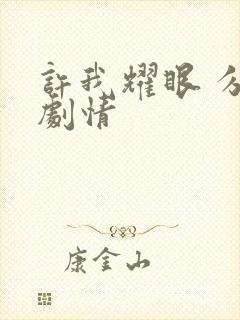 許我耀眼 分
劇情
康金山